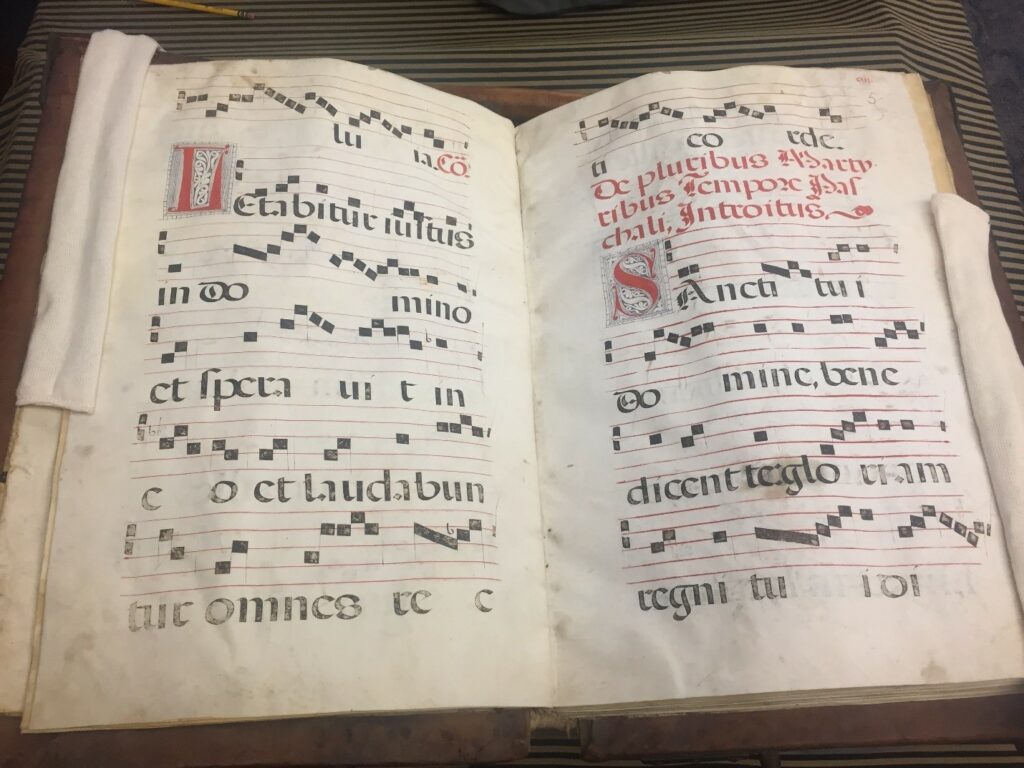 lu ia. Cō.
LEtabitur iustus
in Do mino
et spera ui t in
e o et laudabun
tur omnes re c
5
ti co rde.
De pluribus Marty
ribus Tempore Pas
chali, Introitus.
SAncti tu i
Do mine, bene
dicent te: glo riam
regni tu i di